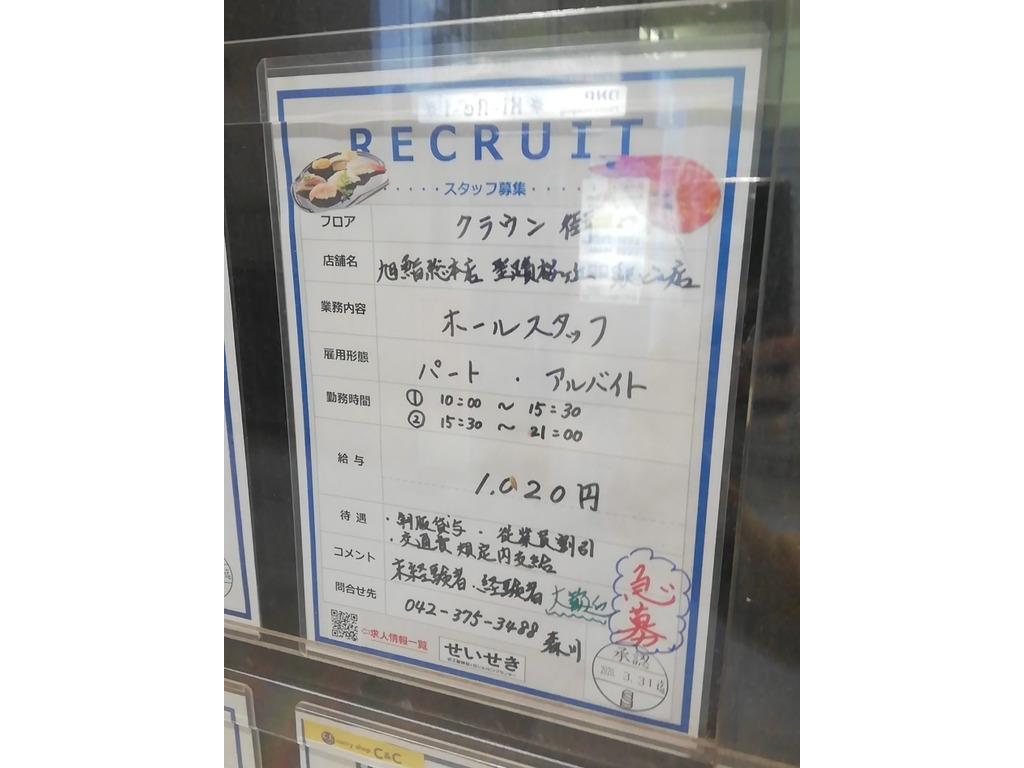 RECRUIT
スタッフ募集
フロア クラウン街
店舗名 旭鮨総本店 聖蹟桜ヶ丘 駅ビル店
業務内容 ホールスタッフ
雇用形態 パート ・ アルバイト
勤務時間 ① 10:00 ～ 15:30
② 15:30 ～ 21:00
給与 1.020円
待遇 ・制服貸与 ・従業員割引
・交通費 規定内支給
コメント 未経験者・経験者 大歓迎
問合せ先 042-375-3488 森川
急募
⇨求人情報一覧
せいせき
承認
3.31迄
curry shop C&C